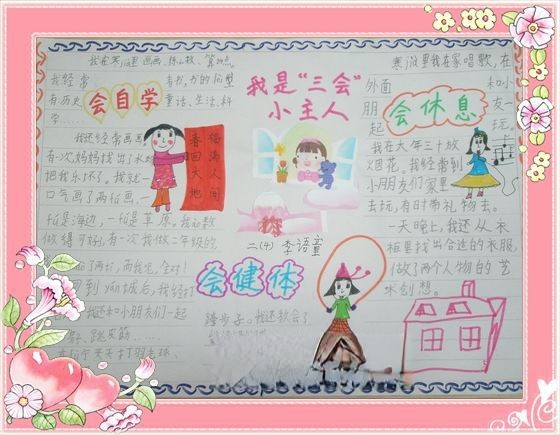 我是“三会”
小主人
我在寒假里画画、练心数、
会自学
我经常
看书,书的问型
有:历史
童话、生活、科
学……
我还经常画画
有一次妈妈找出了水
把我乐坏了。我就一
口气画了两幅画,
一幅是海边,一幅是草原。我心数
做得可好,有一次我做二年级的
福满人间
春回大地
二(4) 李语童
会健体
我还和小朋友们一起
跳皮筋……
天天打羽毛球、
踏步子。我还教会了
会休息
寒假里我在家唱歌,在
外面
和小
朋
友一
起
玩。
我在大年三十放
烟花。我经常到
小朋友们家里
去玩,有时带礼物去。
一天晚上,我还从衣
柜里找出合适的衣服,
做了两个人物的艺
术创想。